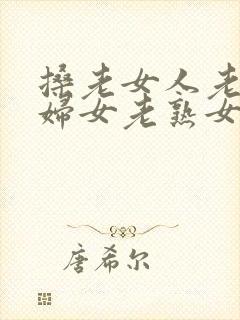 搡老女人老
妇女老熟女
唐希尔